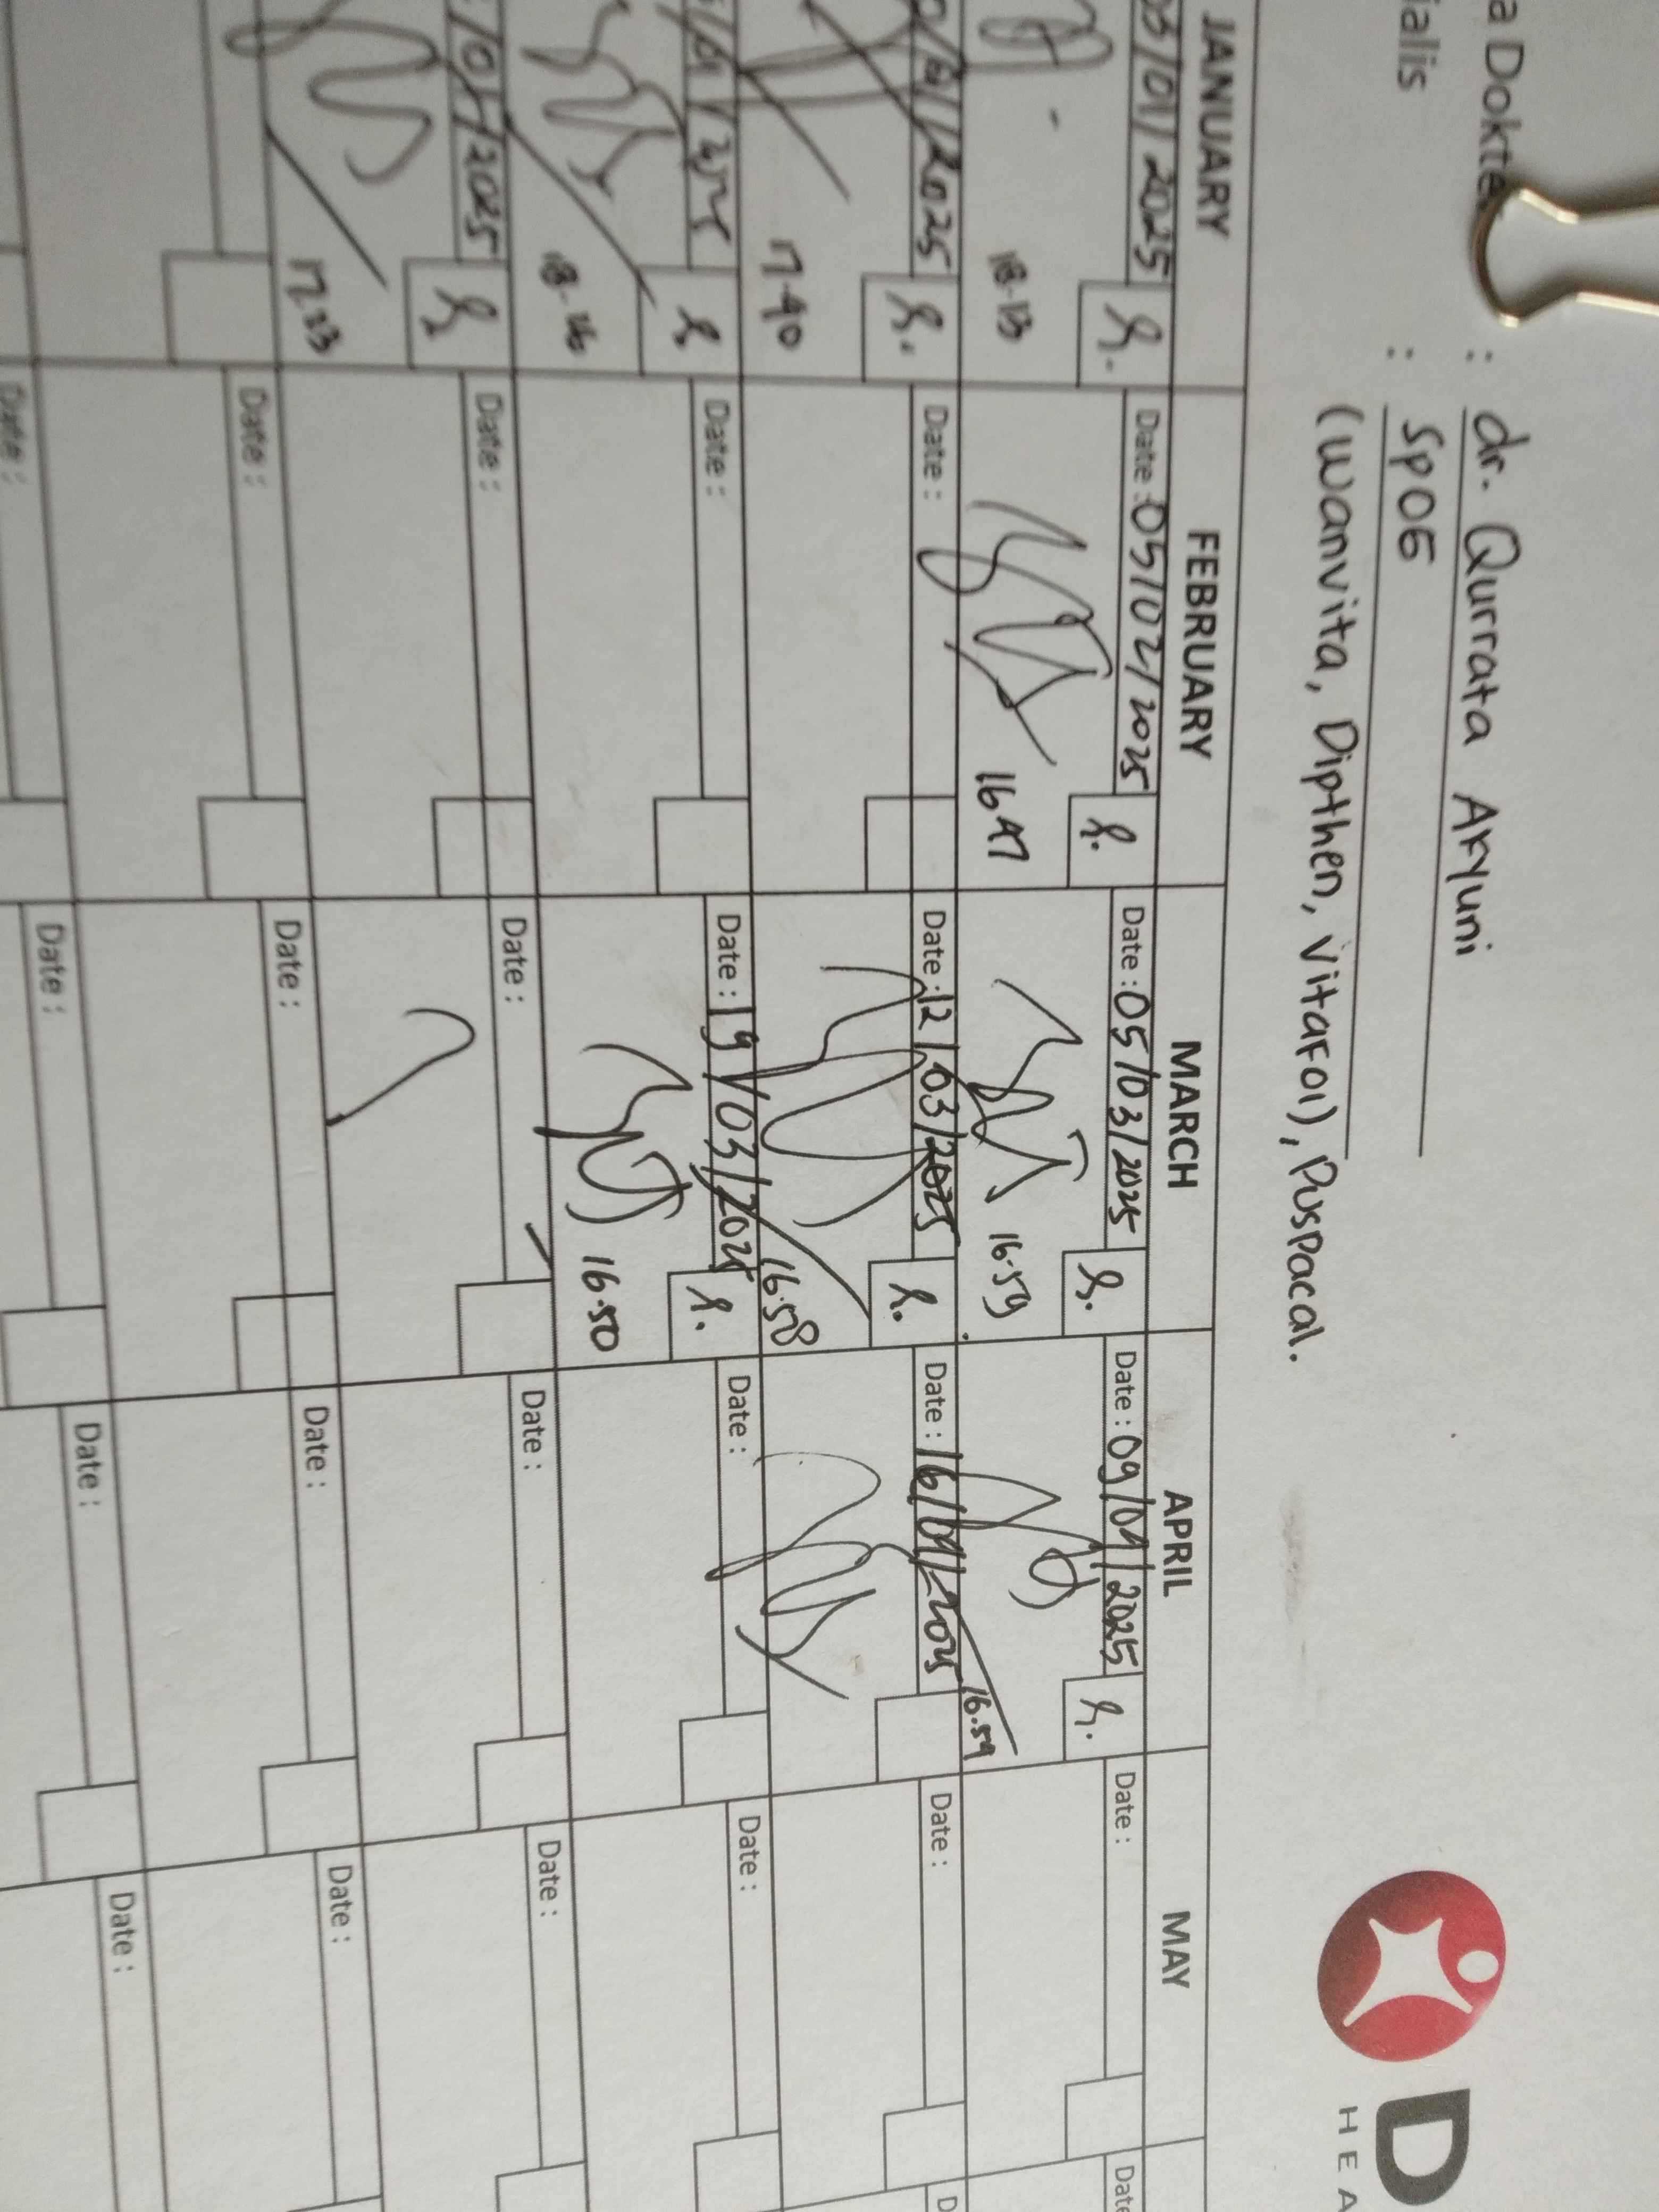 a Dokte : dr. Qurrata Aryuni
ialis : SpOG
(Wwanvita, Dipthen, Vitafol), Puspacal.
D
HEA
JANUARY FEBRUARY MARCH APRIL MAY
03/01/2025 Date : 05/02/2025 Date : 05/03/2025 Date : 09/04/2025 Date : Date
18.13 16.47 16.59 16.59
/2025 Date : Date : 12/03/2025 Date : 16/04/2025 Date : D
17.40 16.58
Date : Date : 19/03/2025 Date : Date :
16.50
/01/2025 Date : Date : Date : Date :
17.33
Date : Date : Date : Date :
Date : Date : Date : Date :